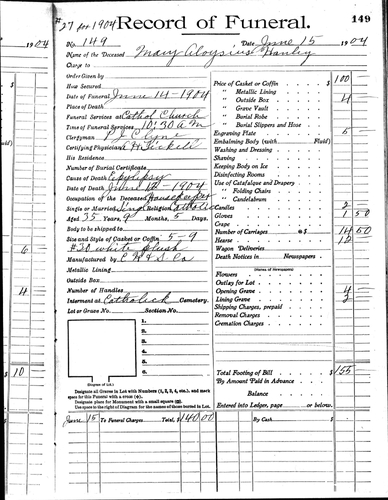 #27 for 1904
Record of Funeral.
149
1904
No. 149
Date June 15 1904
Name of the Deceased Mary Aloysius Hanley
Charge to
Order Given by
Hour Secured
Date of Funeral June 14-1904
Place of Death
Funeral Services at Cathol Church
Time of Funeral Services 10:30 a.m
Clergyman P J Clyne
Certifying Physician
His Residence
Number of Burial Certificate
Cause of Death Epilepsy
Date of Death June 12-1904
Occupation of the Deceased Housekeeper
Single or Married Sing Religion Catholic
Aged 35 Years, 9 Months, 5 Days.
Body to be shipped to
Size and Style of Casket or Coffin 5-9
#20 white plush
Manufactured by
Metallic Lining
Outside Box
Number of Handles
Interment at Catholick Cemetery.
Lot or Grave No. Section No.
1.
2.
3.
4.
5.
6.
(Diagram of Lot.)
Designate all Graves in Lot with Numbers (1, 2, 3, 4, etc.), and mark
space for this Funeral with a cross (+).
Designate place for Monument with a small square.
Use space to the right of Diagram for the names of those buried in Lot.
Price of Casket or Coffin $ 100
" Metallic Lining
" Outside Box 4
" Grave Vault
" Burial Robe
" Burial Slippers and Hose
Engraving Plate 5
Embalming Body (with Fluid)
Washing and Dressing
Shaving
Keeping Body on Ice
Disinfecting Rooms
Use of Catafalque and Drapery
" Folding Chairs
" Candelabrum
Candles 2
Gloves 1 50
Crape
Number of Carriages @ $ 14 50
Hearse 12
Wagon Deliveries
Death Notices in Newspapers
Flowers
Outlay for Lot
Opening Grave 4
Lining Grave 2
Shipping Charges, prepaid
Removal Charges
Cremation Charges
Total Footing of Bill $155
By Amount Paid in Advance
Balance
Entered into Ledger, page or below.
6
4
$10
June 15 To Funeral Charges Total, $140.00
By Cash